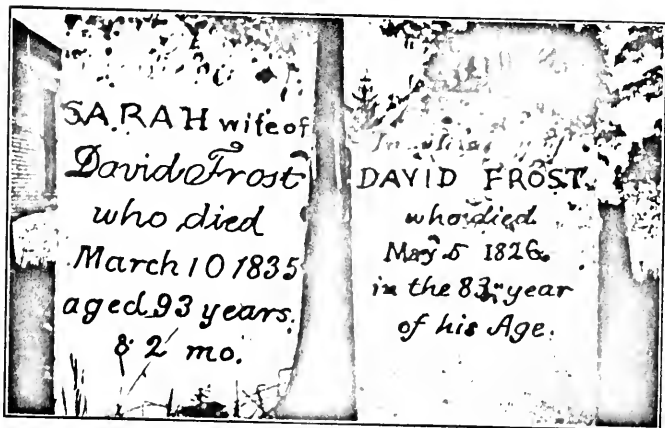 SARAH wife of
David Frost
who died
March 10 1835
aged 93 years.
& 2 mo.
DAVID FROST
who died
May 5 1826
in the 83 year
of his Age.